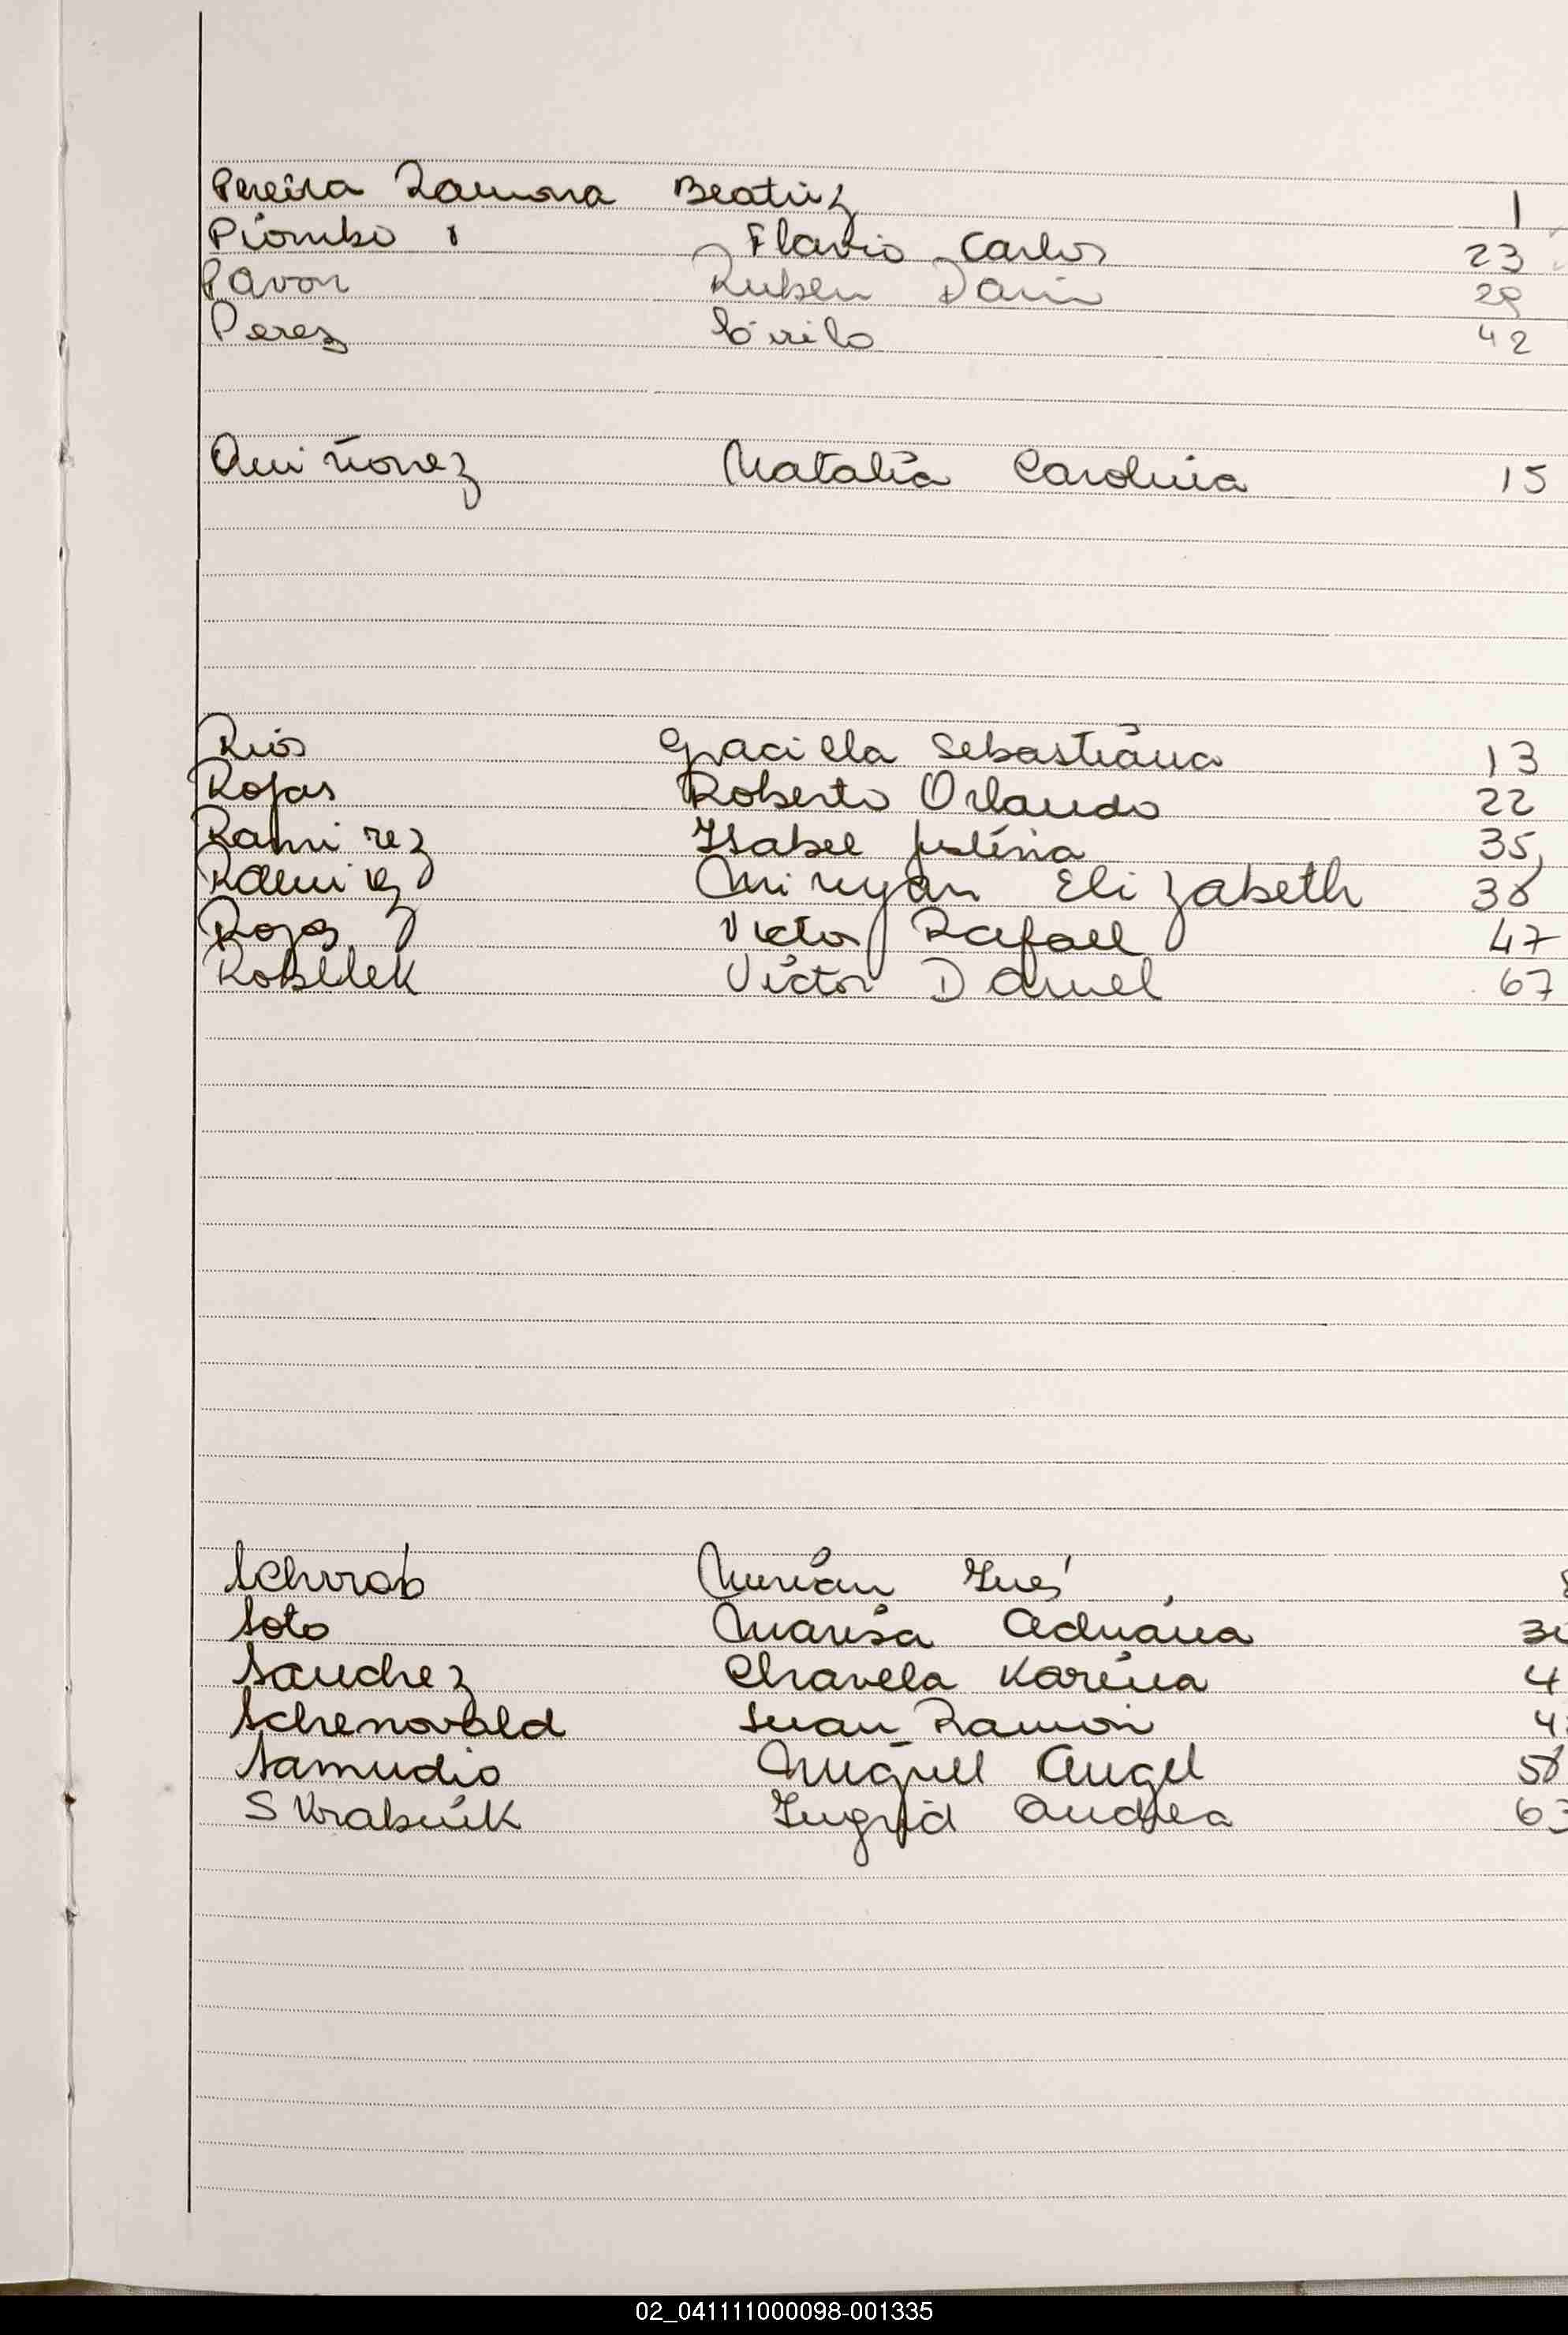 Pereira Ramona Beatriz 1
Piombo Flavio Carlos 23
Pavon Ruben Dario 29
Perez Cirilo 42
Quiñonez Natalia Carolina 15
Rios Graciela Sebastiana 13
Rojas Roberto Orlando 22
Ramirez Isabel Justina 35
Ramirez Miryan Elizabeth 38
Rojas Victor Rafael 47
Victor Daniel 67
Schwab Mirian Inés
Soto Marisa Adriana
Sanchez Chavela Karina
Schenovald Juan Ramon
Samudio Miguel Angel
Skrabuik Ingrid Andrea
02_041111000098-001335